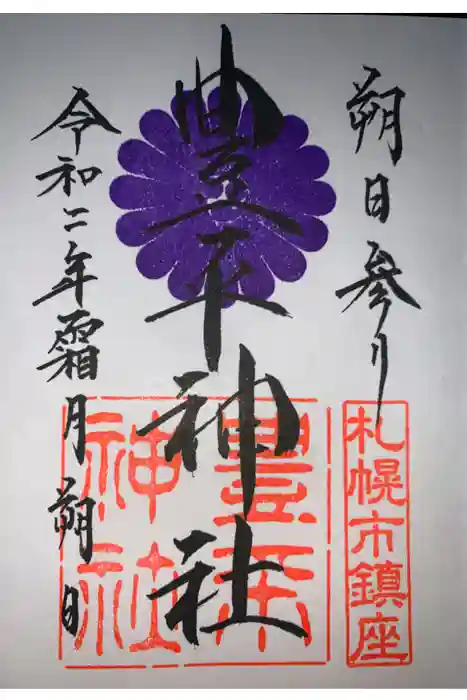 朔日参り
札幌市鎮座
豊平神社
豊平神社
令和二年霜月朔日